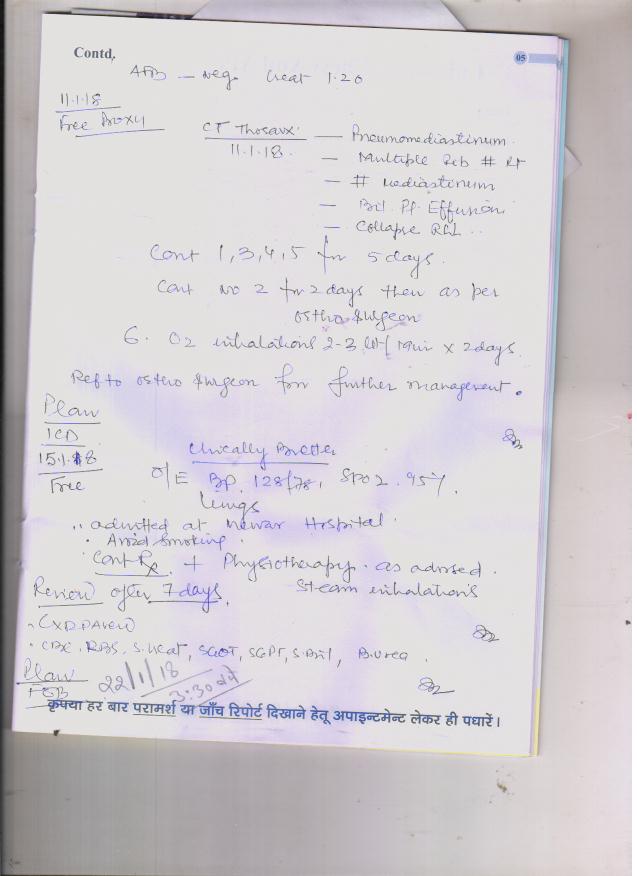 Contd.
05
AFB — Neg. Creat 1.20
11.1.18
Free Proxy
CT Thorax — Pneumomediastinum.
11.1.18. — Multiple Rib # Rt
— # Mediastinum
— Bil. Pl. Effusion
— Collapse RLL ..
Cont 1,3,4,5 for 5 days.
Cont no 2 for 2 days then as per
ortho surgeon
6. O2 inhalations 2-3 lit/min x 2 days.
Ref to ortho surgeon for further management.
Plan
ICD
15.1.18
Free
Clinically Better
O/E BP. 128/78, SPO2. 95%.
Lungs
admitted at Mewar Hospital.
Avoid Smoking.
Cont Rx + Physiotherapy. as advised.
Steam inhalations
Review after 7 days.
CBC, RBS, S.Creat, SGOT, SGPT, S.Bil, B.Urea.
Plan
FOB
22/1/18
3:30 बजे
कृपया हर बार परामर्श या जाँच रिपोर्ट दिखाने हेतु अपाइन्टमेन्ट लेकर ही पधारें।